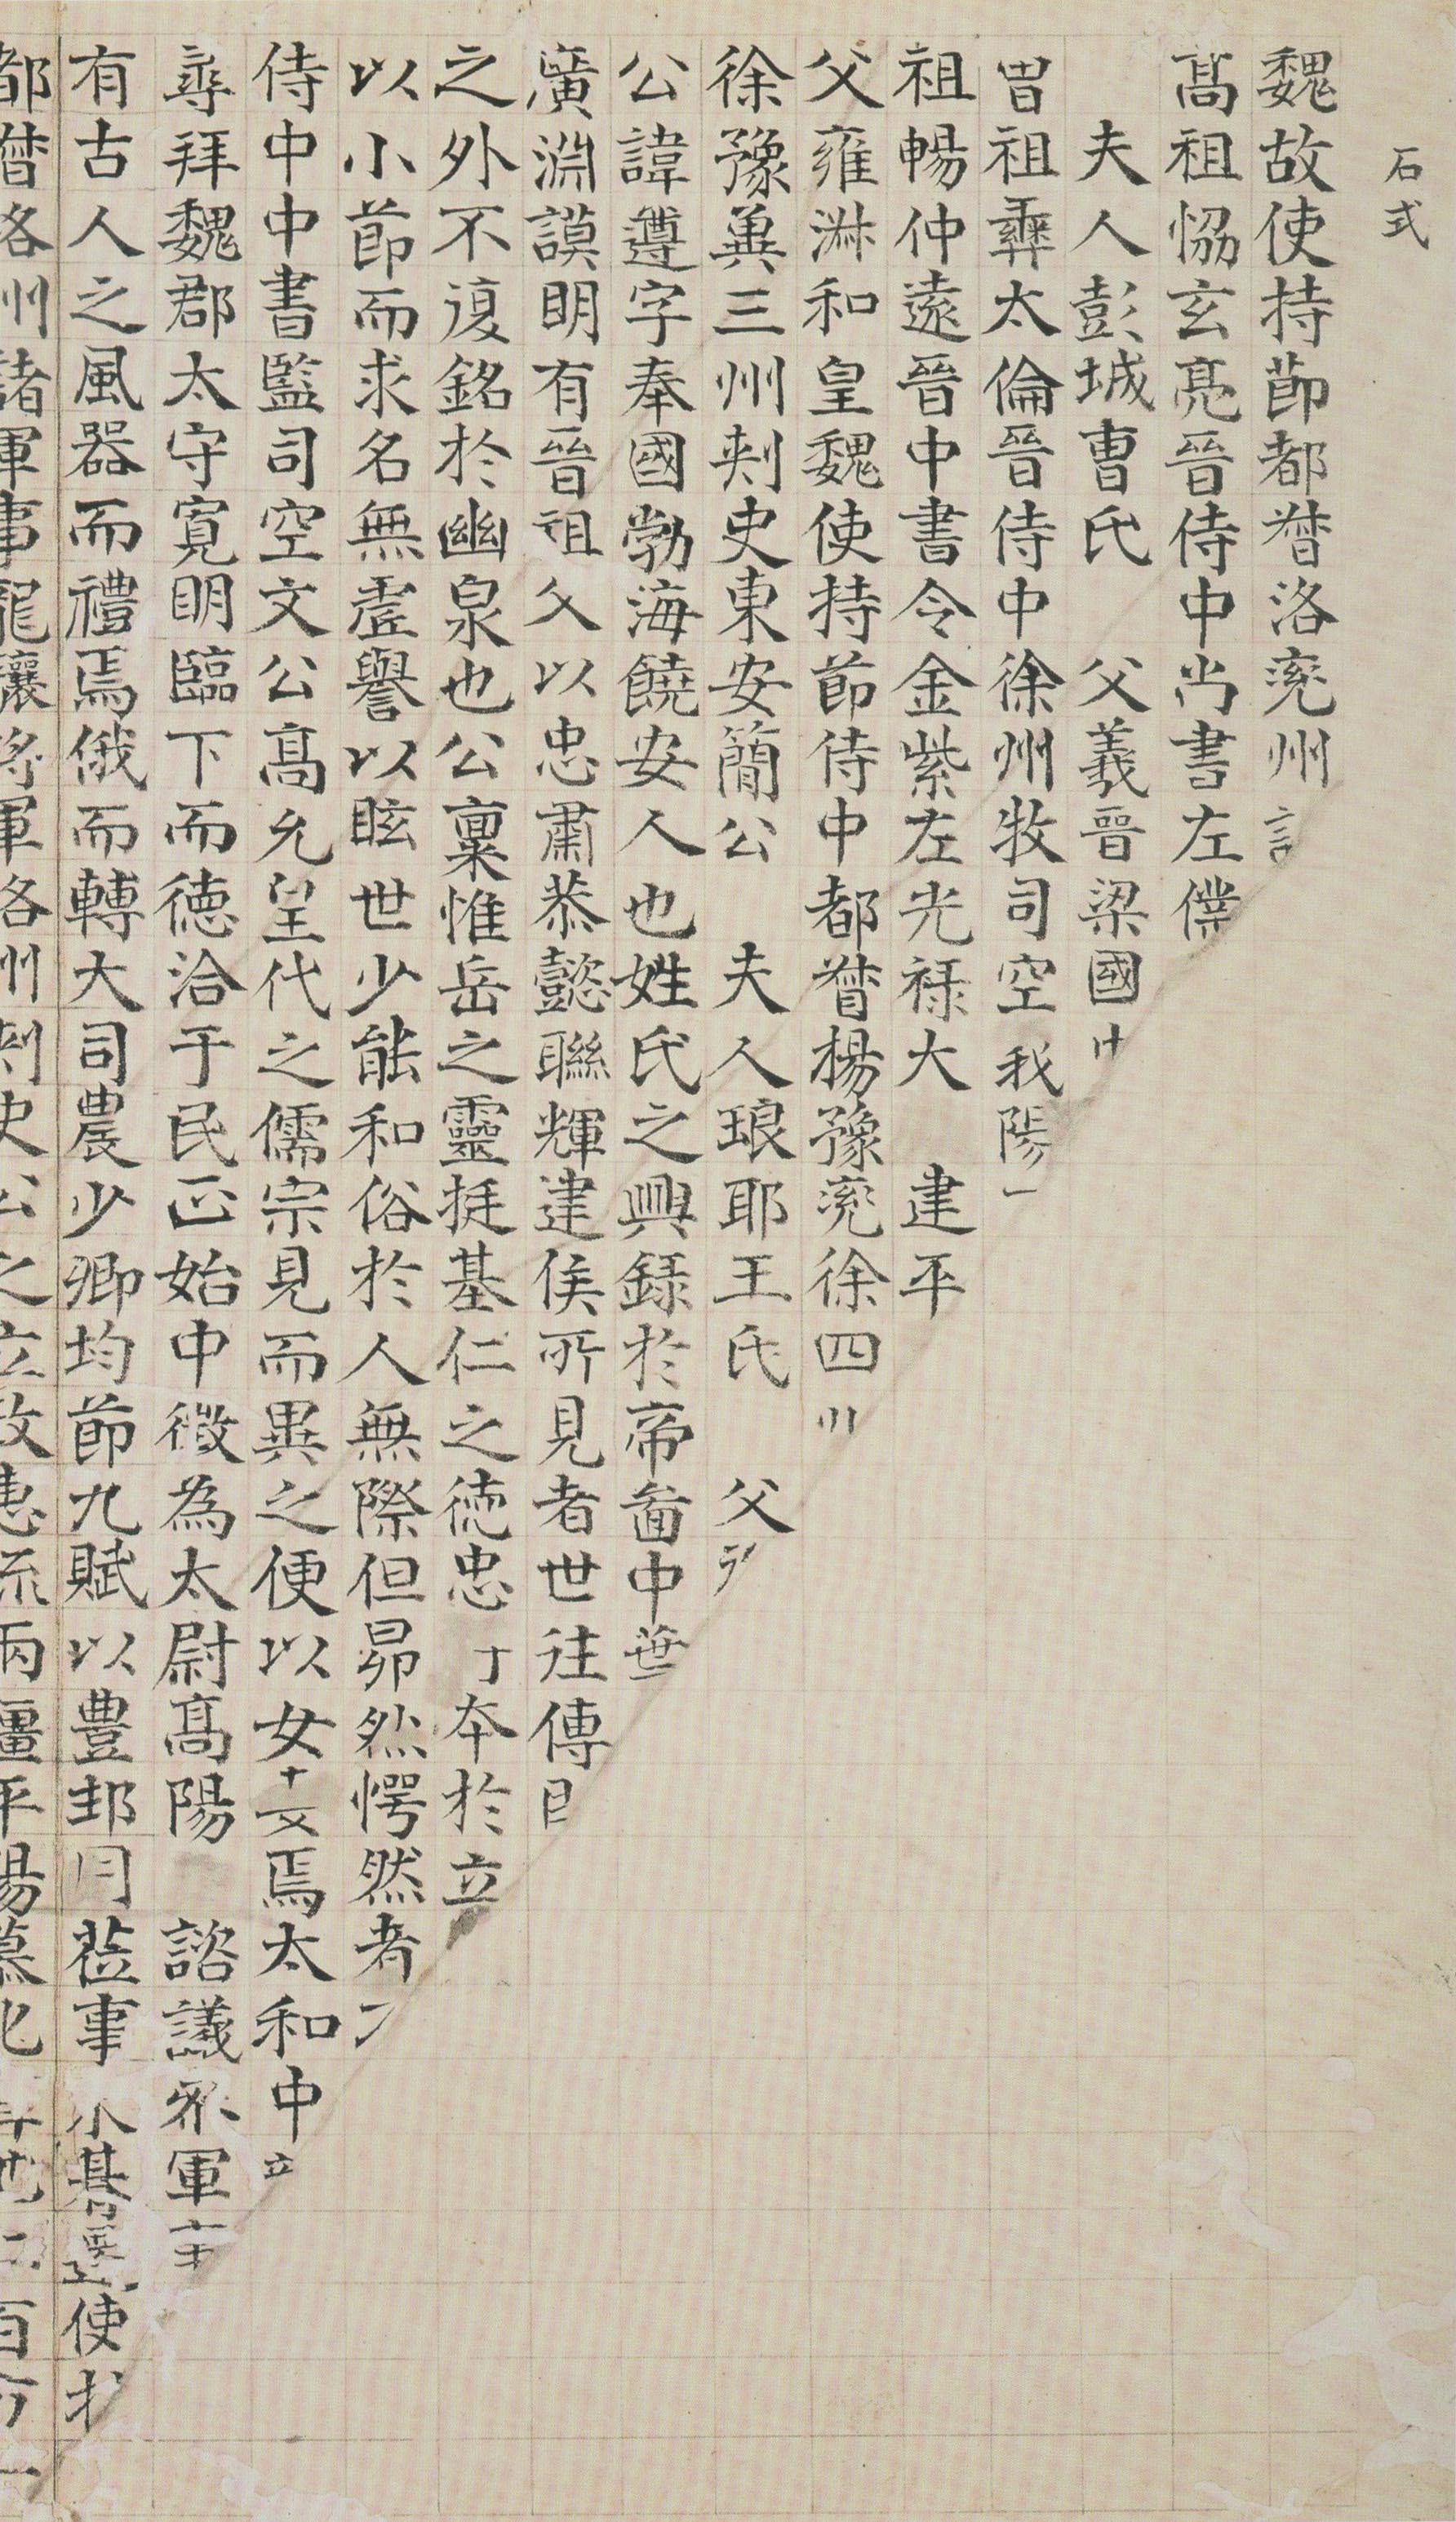 石式
魏故使持節都督洛兗州
高祖協玄亮晉侍中尚書左僕
夫人彭城曹氏 父羲晉梁國
曾祖彝太倫晉侍中徐州牧司空義陽
祖暢仲遠晉中書令金紫左光祿大 建平
父雍淋和皇魏使持節侍中都督楊豫兗徐四
徐豫兾三州刺史東安簡公 夫人琅耶王氏 父
公諱遵字奉國勃海饒安人也姓氏之興錄於帝啚中葉
廣淵謨明有晉祖父以忠肅恭懿聯輝建侯所見者世往傳
之外不復銘於幽泉也公稟惟岳之靈挺基仁之德忠 本於立
以小節而求名無虛譽以眩世少能和俗於人無際但昴然愕然者
侍中中書監司空文公高允皇代之儒宗見而異之便以女 焉太和中
尋拜魏郡太守寬明臨下而德洽于民正始中徵為太尉高陽 諮議參軍
有古人之風器而禮焉俄而轉大司農少卿均節九賦以豐邦 蒞事 朞 使
都督洛州諸軍事龍驤將軍洛州刺史公之立政惠流兩疆平陽慕化 百